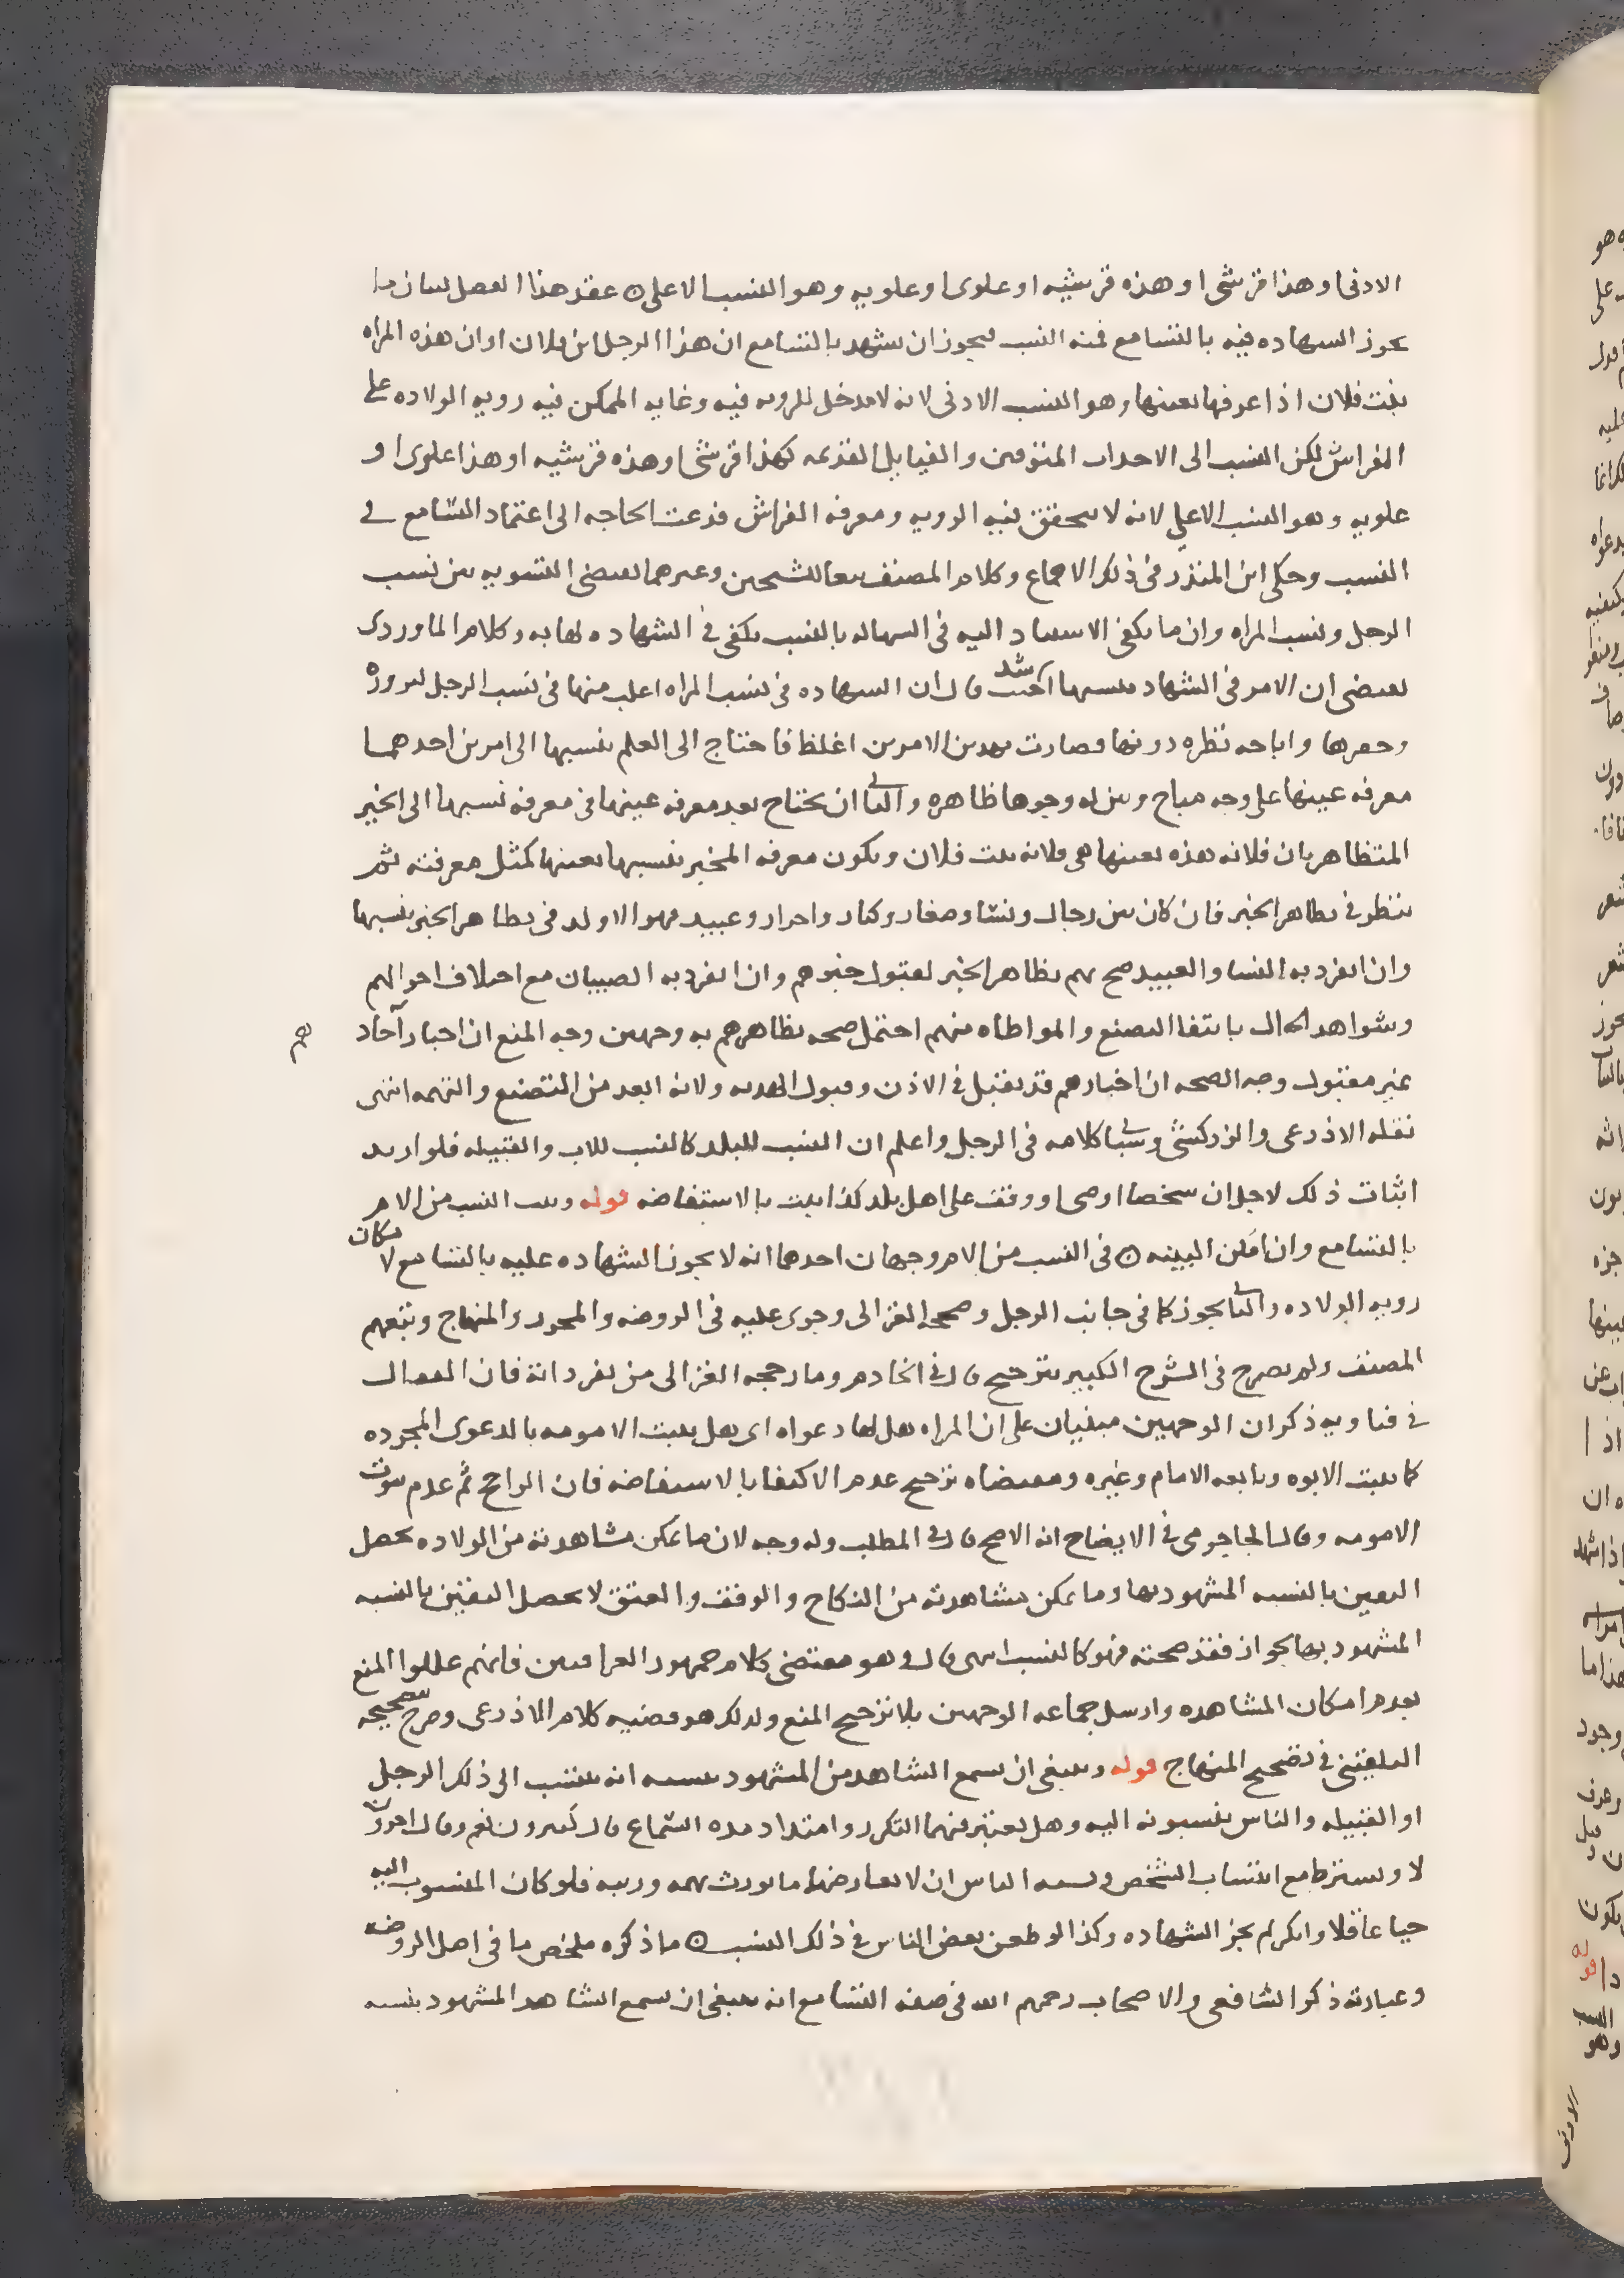 الادنى او هذا قرشى او هذه قرشيه او علوى او علويه وهو النسب الاعلى ۞ عقد هذا الفصل لبيان ما
يجوز الشهاده فيه بالتسامع فمنه النسب فيجوز ان يشهد بالتسامع ان هذا الرجل ابن فلان او ان هذه المراه
بنت فلان اذا عرفها بعينها وهو النسب الادنى لانه لا مدخل للرويه فيه وغايه الممكن فيه رويه الولاده على
الفراش لكن النسب الى الاجداد المتوفين والقبايل القديمه كهذا قرشى او هذه قرشيه او هذا علوى او
علويه وهو النسب الاعلي لانه لا يتحقق فيه الرويه ومعرفه الفراش فدعت الحاجه الى اعتماد التسامع في
النسب وحكى ابن المنذر فى ذلك الاجماع وكلام المصنف تبعا للشيخين وغيرهما يقتضى التسويه بين نسب
الرجل ونسب المراه وان ما يكفى الاستناد اليه فى الشهاده بالنسب يكفى فى الشهاده لها به وكلام الماوردى
يقتضى ان الامر فى الشهاده بنسبها اشد قال ان الشهاده فى نسب المراه اغلب منها فى نسب الرجل لبروزه
وخفرها واباحه نظره دونها فصارت بهدين الامرين اغلظ فاحتاج الى العلم بنسبها الى امرين احدهما
معرفه عينها على وجه مباح وبين له وجوها ظاهره والثانى ان يحتاج بعد معرفه عينها فى معرفه نسبها الى الخبر
المتظاهر بان فلانه هذه بعينها هى فلانه بنت فلان ويكون معرفه المخبر بنسبها بعينها كمثل معرفته ثم
ينظر فى تظاهر الخبر فان كان من رجال ونسا وصغار وكبار واحرار وعبيد فهو الاولى فى تظاهر الخبر بنسبها
وان انفرد به النسا والعبيد صح بهم تظاهر الخبر لقبول خبرهم وان انفرد به الصبيان مع اختلاف احوالهم
وشواهد الحال بانتفا التصنع والمواطاه منهم احتمل صحه تظاهرهم به وجهين وجه المنع ان اخبار آحادهم
غير مقبول وجه الصحه ان اخبارهم قد يقبل فى الاذن وقبول الهديه ولانه ابعد من التصنع والتهمه انتهى
نقله الاذرعى والزركشى وسياتى كلامه فى الرجل واعلم ان النسب للبلد كالنسب للاب والقبيله فلو اريد
اثبات ذلك لاجل ان شخصا اوصى او وقف على اهل بلد كذا يثبت بالاستفاضه قوله ويثبت النسب من الام
بالتسامع وان امكن البينه ۞ فى النسب من الام وجهان احدهما انه لا يجوز الشهاده عليه بالتسامع لامكان
رويه الولاده والثانى يجوز كما فى جانب الرجل وصححه الغزالى وجرى عليه فى الروضه والمحرر والمنهاج وتبعهم
المصنف ولم يصرح فى الشرح الكبير بترجيح قال فى الخادم وما رجحه الغزالى من تفرداته فان القفال
فى فتاويه ذكر ان الوجهين مبنيان على ان المراه هل لها دعواه اى هل يثبت الامومه بالدعوى المجرده
كما يثبت الابوه وتابعه الامام وغيره ومقتضاه ترجيح عدم الاكتفا بالاستفاضه فان الراجح ثم عدم ثبوت
الامومه وقال الجاجرمى فى الايضاح انه الاصح قال فى المطلب وله وجه لان ما يمكن مشاهدته من الولاده يحصل
اليقين بالنسبه المشهود بها وما يمكن مشاهدته من النكاح والوقف والعتق لا يحصل اليقين بالنسبه
المشهود بها لجواز فقد صحته فهو كالنسب انتهى قال وهو مقتضى كلام جمهور العراقيين فانهم عللوا المنع
بعدم امكان المشاهده وارسل جماعه الوجهين بلا ترجيح المنع ولذلك هو قضيه كلام الاذرعى وصرح بتصحيحه
البلقينى فى تصحيح المنهاج قوله وينبغى ان يسمع الشاهد من المشهود بنسبه انه ينتسب الى ذلك الرجل
او القبيله والناس ينسبونه اليه وهل يعتبر فيهما التكرر وامتداد مده السماع قال كثيرون نعم وقال اخرون
لا ويشترط مع انتساب الشخص ونسبه الناس ان لا يعارضهما ما يورث تهمه وريبه فلو كان المنسوب اليه
حيا عاقلا وانكر لم يجز الشهاده وكذا لو طعن بعض الناس فى ذلك النسب ۞ ما ذكره ملخص ما فى اصل الروضه
وعبارته ذكر الشافعى والاصحاب رحمهم الله فى صفه التسامع انه ينبغى ان يسمع الشاهد المشهود بنسبه